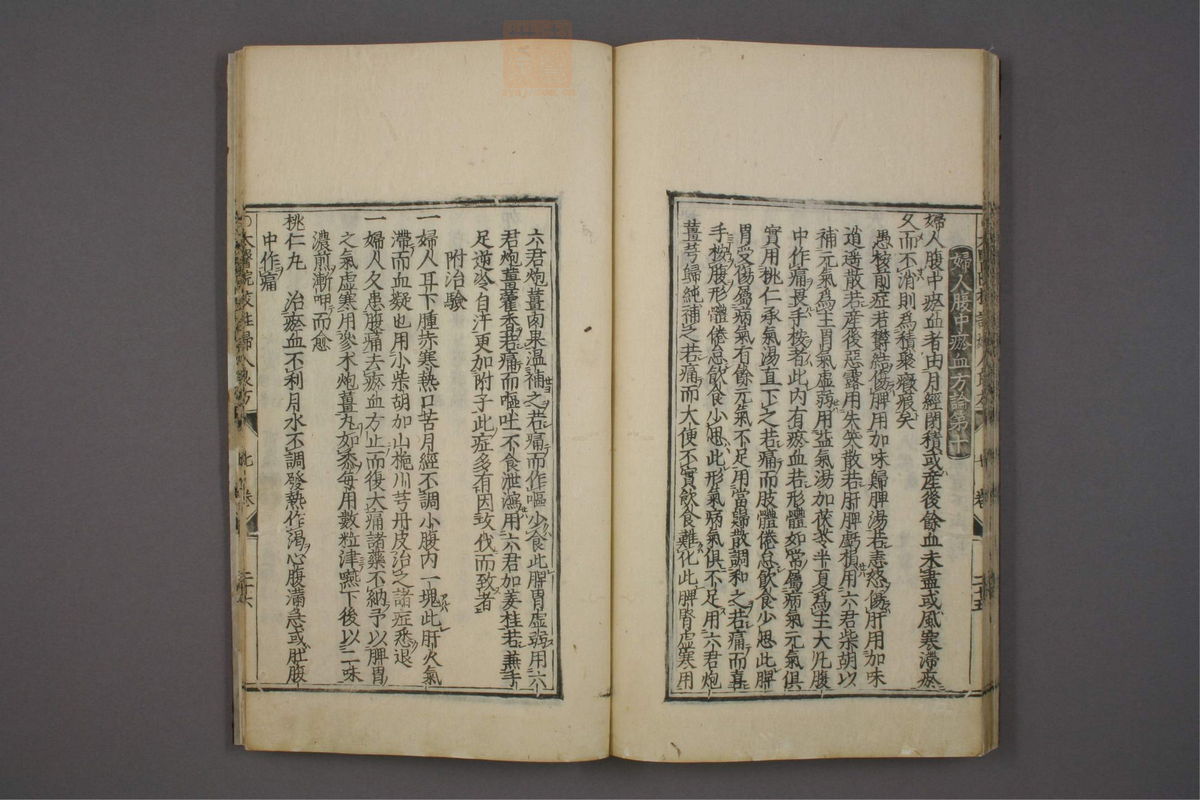 婦人腹中瘀血方論第十
婦人腹中瘀血者由月經閉積或産後餘血未盡或風寒滯瘀
久而不消則為積聚癥瘕矣
愚按前症若欝結傷脾用加味歸脾湯若恚怒傷肝用加味
逍遥散若産後惡露用失笑散若肝脾虧損用六君柴胡以
補元氣為主胃氣虛弱用益氣湯加茯苓半夏為主大凡腹
中作痛畏手按者此内有瘀血若形體如常屬病氣元氣俱
實用桃仁承氣湯直下之若痛而肢體倦怠飲食少思此脾
胃受傷屬病氣有餘元氣不足用當歸散調和之若痛而喜
手按腹形體倦怠飲食少思此形氣病氣俱不足用六君炮
薑芎歸純補之若痛而大便不實飲食難化此脾腎虛寒用
六君炮薑肉果温補之若痛而作嘔少食此脾胃虛弱用六
君炮薑藿香若痛而嘔吐不食泄瀉用六君加姜桂若兼手
足逆冷自汗更加附子此症多有因攻伐而致者
附治驗
一婦人耳下腫赤寒熱口苦月經不調小腹内一塊此肝火氣
滯而血凝也用小柴胡加山梔川芎丹皮治之諸症悉退
一婦人久患腹痛去瘀血方止而復大痛諸藥不納予以脾胃
之氣虛寒用參朮炮薑丸如黍每用數粒津嚥下後以二味
濃煎漸呷而愈
桃仁丸 治瘀血不利月水不調發熱作渴心腹滿急或肚腹
中作痛
太醫院校註婦人良方
卷
二十六
二十五